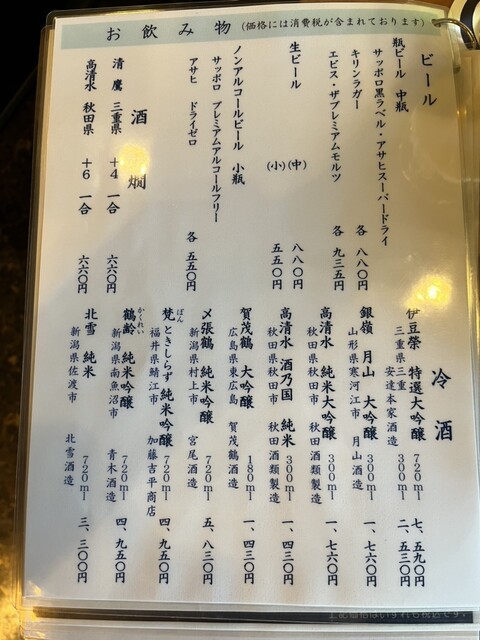 お飲み物(価格には消費税が含まれております)
ビール
瓶ビール 中瓶
サッポロ黒ラベル・アサヒスーパードライ
キリンラガー 各 八八〇円
エビス・ザプレミアムモルツ 各 九三五円
生ビール (中) 八八〇円
(小) 五五〇円
ノンアルコールビール 小瓶
サッポロ プレミアムアルコールフリー
アサヒ ドライゼロ 各 五五〇円
酒 燗
清鷹 三重県 +4 一合 六六〇円
高清水 秋田県 +6 一合 六六〇円
冷酒
伊豆榮 特選大吟醸 720ml 七、五九〇円
三重県三重 安達本家酒造 300ml 二、五三〇円
銀嶺 月山 大吟醸 300ml 一、七六〇円
山形県寒河江市 月山酒造
高清水 純米大吟醸 300ml 一、七六〇円
秋田県秋田市 秋田酒類製造
高清水 酒乃国 純米 300ml 一、四三〇円
秋田県秋田市 秋田酒類製造
賀茂鶴 大吟醸 180ml 一、四三〇円
広島県東広島 賀茂鶴酒造
〆張鶴 純米吟醸 720ml 五、八三〇円
新潟県村上市 宮尾酒造
梵 ときしらず 純米吟醸 720ml 四、九五〇円
ぼん
福井県鯖江市 加藤吉平商店
鶴齢 純米吟醸 720ml 四、九五〇円
かくれい
新潟県南魚沼市 青木酒造
北雪 純米 720ml 三、三〇〇円
新潟県佐渡市 北雪酒造